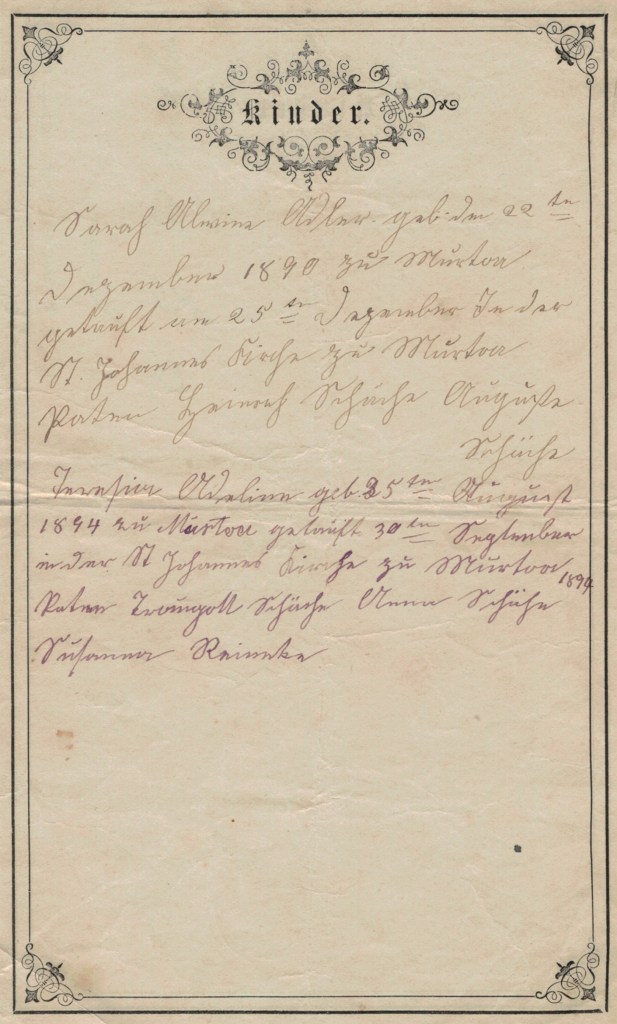 Kinder.
Sarah Alwine Adler geb. den 22 ten
Dezember 1890 zu Murtoa
getauft am 25 ten Dezember In der
St. Johannes Kirche zu Murtoa
Paten Heinrich Schäche Auguste
Schäche
Teresia Adeline geb. 25 ten August
1894 zu Murtoa getauft 30 ten September
in der St Johannes Kirche zu Murtoa
1894
Paten Traugott Schäche Anna Schühe
Susanna Reineke